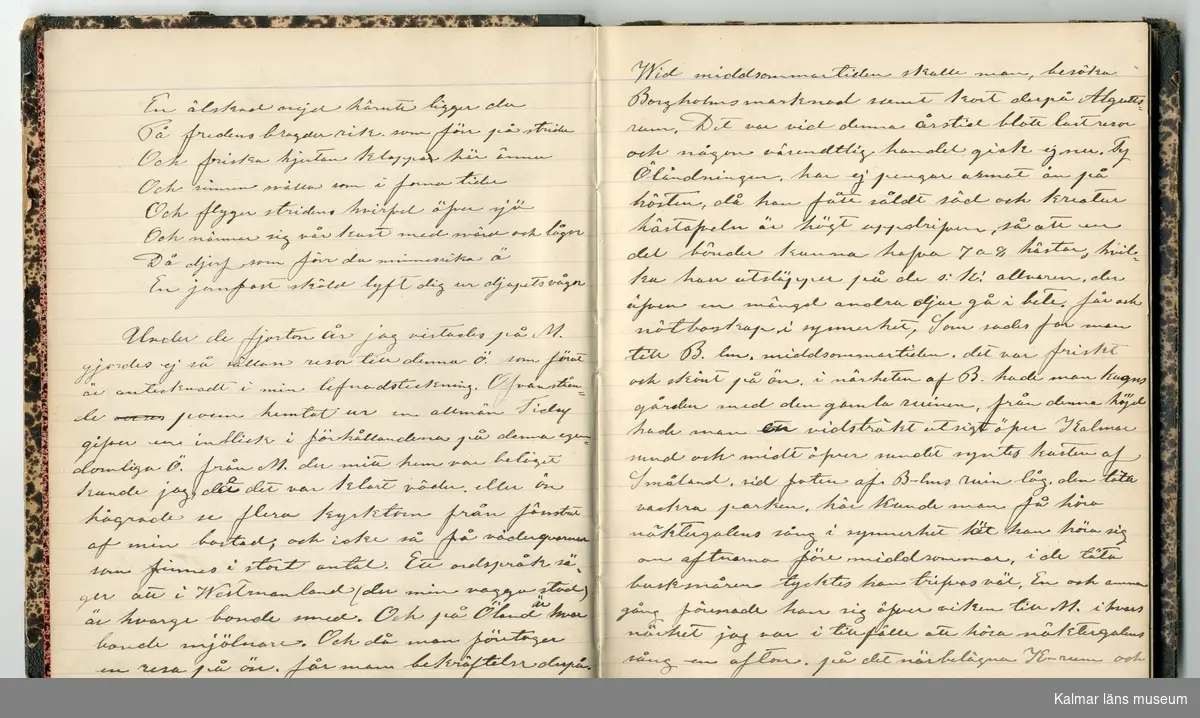 En älskad ungd härute ligger du
På fredens bragder rik. som förr på strider
Och friska hjertan klappa här ännu
Och sinnen trälla som i forna tider
Och flyger stridens hvirfvel öfver sjö
Och närmar sig vår kust med svärd och lågor
Då djerf som förr du minnesrika ö
En jernfast sköld lyft dig ur djupets vågor
Under de fjorton år jag vistades på M.
gjordes ej så sällan resor till denna Ö. som förut
är antecknadt i min lefnadsteckning. Ofvanstående
poem hemtat ur en allmän Tidng
gifver en inblick i förhållanderna på denna egen-
domliga Ö. från M. der mitt hem var beläget
kunde jag, då det var klart väder, eller ön
hägrade se flera kyrktorn från fönstret
af min bostad; och icke så få väderqvarnar
som finnes i stort antal. Ett ordspråk sä-
ger att i Westmanland (der min vagga stod)
är hvarje bonde smed. Och på Öland är hvar
bonde mjölnare. Och då man företager
en resa på ön. får man bekräftelse derpå.
Wid middsommartiden skulle man, besöka
Borgholmsmarknad samt kort derpå Algutts-
rum. Det var vid denna årstid blott lustresor
och någon väsendtlig handel gick ej nu. Ty
Ölänningen, har ej pengar annat än på
hösten, då han fått såldt säd och kreatur
hästafveln är högt uppdrifven, så att en
del bönder kunna hafva 7 a 8 hästar, hvil-
ka han utsläpper på de s: k: allvaren, der
äfven en mängd andra djur gå i bete. får och
nötboskap, i synnerhet. Som sades for man
till B. lm. middsommartiden. det var friskt
och skönt på ön. i närheten af B. hade man Kungs
gården med den gamla ruinen, från denna höjd
hade man en vidsträkt utsigt öfver Kalmar
sund och midt öfver sundet syntes kusten af
Småland. vid foten af B-lms ruin låg, den täta
vackra parken, här kunde man få höra
näktergalens sång i synnerhet lät han höra sig
om aftnarna före middsommar, i de täta
busksnåren tycktes han trifvas väl. En och anna
gång förirrade han sig öfver viken till M. i hvars
närhet jag var i tillfälle att höra näktergalens
sång en afton. på det närbelägna K-rum och
Kalmar läns museum